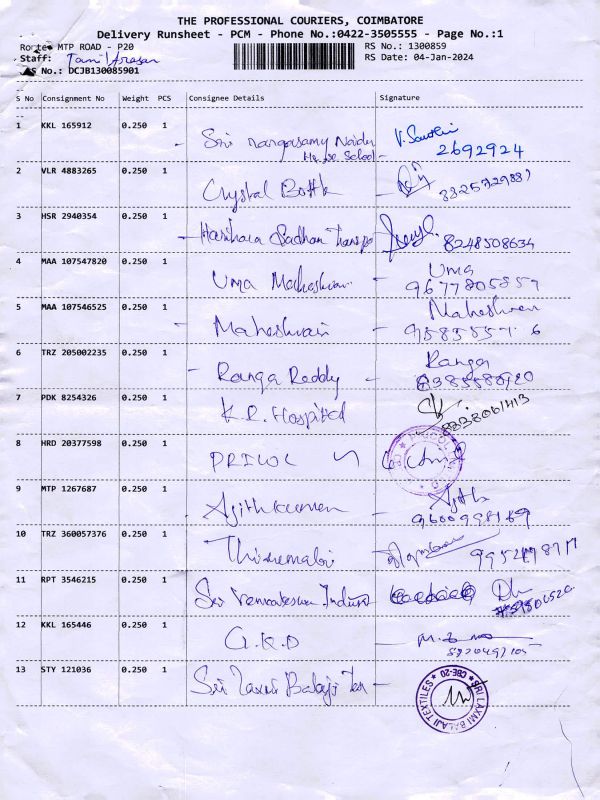 THE PROFESSIONAL COURIERS, COIMBATORE
Delivery Runsheet - PCM - Phone No.:0422-3505555 - Page No.:1
Route: MTP ROAD - P20 RS No.: 1300859
Staff: Tamil Arasan RS Date: 04-Jan-2024
No.: DCJB130085901
S No Consignment No Weight PCS Consignee Details Signature
1 KKL 165912 0.250 1 Sri rangasamy Naidu
Hr. se School 2692924
2 VLR 4883265 0.250 1 Crystal Bottle
3 HSR 2940354 0.250 1 Harihara Sudhan Transpo 8248508634
4 MAA 107547820 0.250 1 Uma Maheshwari Uma
9677805857
5 MAA 107546525 0.250 1 Maheshwari
6 TRZ 205002235 0.250 1 Ranga Reddy Ranga
7 PDK 8254326 0.250 1 K.R. Hospital
8 HRD 20377598 0.250 1 PRICOL
9 MTP 1267687 0.250 1 Ajithkumar Ajith
9600998169
10 TRZ 360057376 0.250 1 Thirumalai
11 RPT 3546215 0.250 1 Sri Venkateswara Indust
12 KKL 165446 0.250 1 G.K.D
13 STY 121036 0.250 1 Sri Laxmi Balaji Tex
SRI LAXMI BALAJI TEXTILES CBE-20